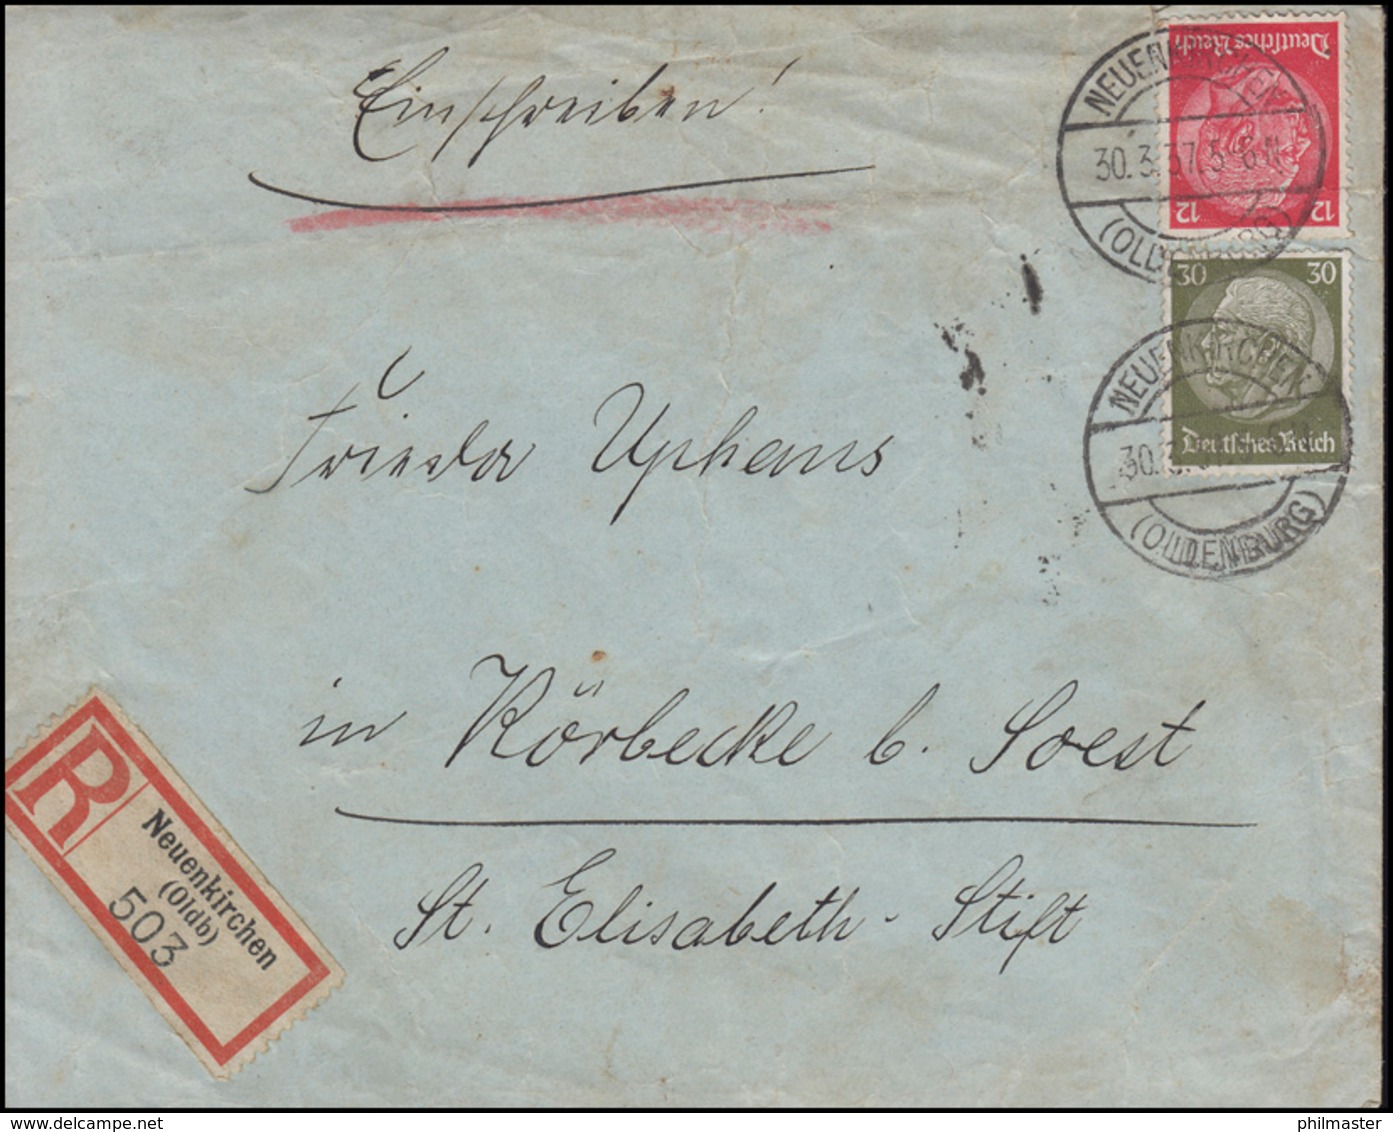 Einschreiben!
Deutsches Reich
12 12
NEUENKIRCHEN
30.3.37.5-6N
(OLDENBURG)
30 30
Deutsches Reich
NEUENKIRCHEN
30.3.
(OLDENBURG)
Frieda Uphaus
in Körbecke b. Soest
St. Elisabeth-Stift
R
Neuenkirchen
(Oldb)
503
philmaster